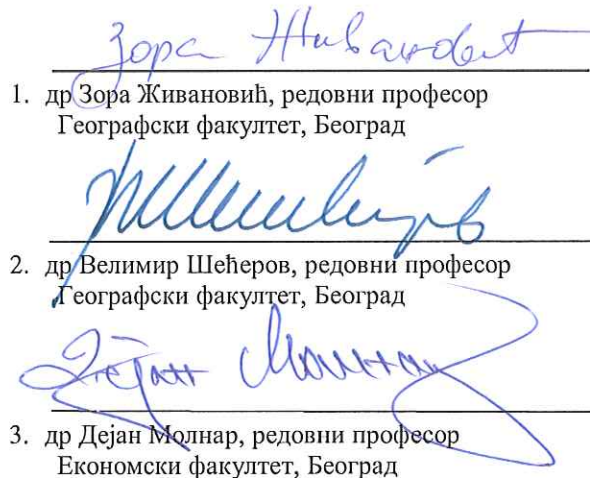 Зора Живановић
1. др Зора Живановић, редовни професор
Географски факултет, Београд
2. др Велимир Шећеров, редовни професор
Географски факултет, Београд
Дејан Молнар
3. др Дејан Молнар, редовни професор
Економски факултет, Београд